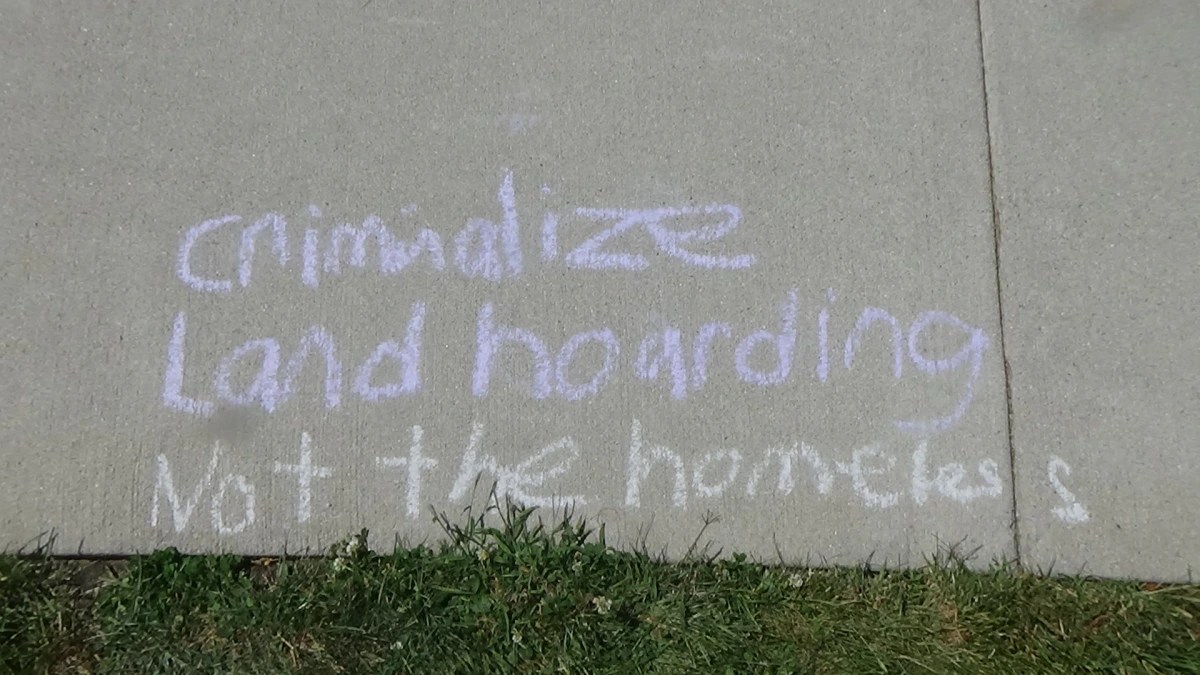 criminalize
Land hoarding
Not the homeless